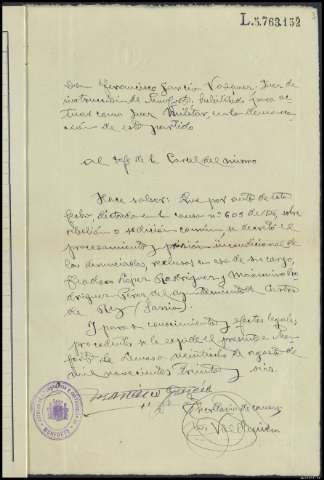 L.5.763.152
Don Francisco García Vazquez Juez de
instrucción de Monforte, habilitado para ac-
tuar como Juez Militar, en la demarca-
ción de este partido
Al Jefe de la Carcel del mismo
Hace saber: Que por auto de esta
fecha, dictado en la causa nº 605 de 1936, sobre
rebelión o sedición comun, se decretó el
procesamiento y prisión incondicional de
los denunciados, reclusos en esa de su cargo,
Lopez Rodriguez y Maximino Ro-
driguez Perez del ayuntamiento de Castro
de Rey
Y para su conocimiento y efectos legales
procedentes se expide el presente en Mon-
forte de Lemos a veintiocho de agosto de
mil novecientos treinta y seis.
Francisco García
El Secretario de causas
MONFORTE